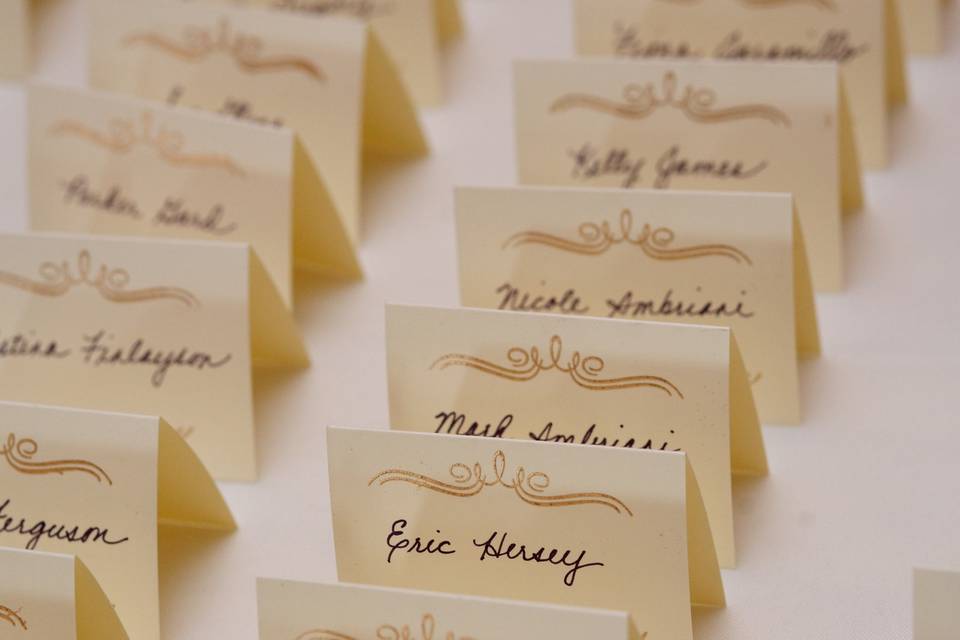 Kelly Games
Parker Gard
Nicole Ambriani
Finlayson
Mark Ambriani
Ferguson
Eric Hersey